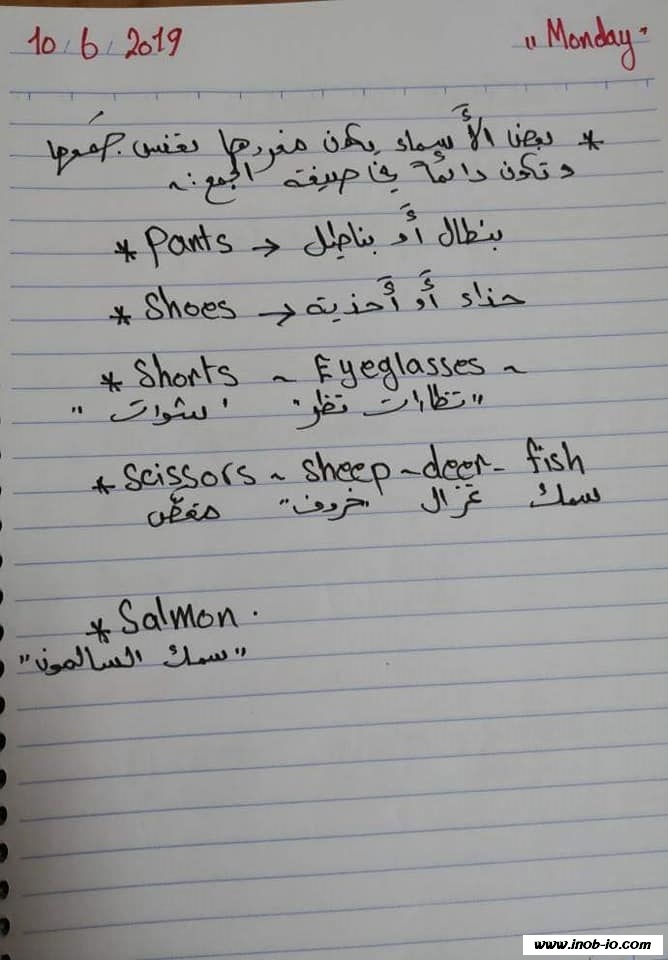 10/6/2019 "Monday"
* بعض الأسماء يكون مفردها نفس جمعها
و تكون دائماً في صيغة الجمع :~
* Pants → بنطال أو بناطيل
* Shoes → حذاء أو أحذية
* Shorts ~ Eyeglasses ~
"نظارات نظر" "شوات"
* Scissors ~ sheep ~ deer - fish
مقصّ "خروف" غزال سمك
* Salmon .
"سمك السالمون"
www.inob-io.com